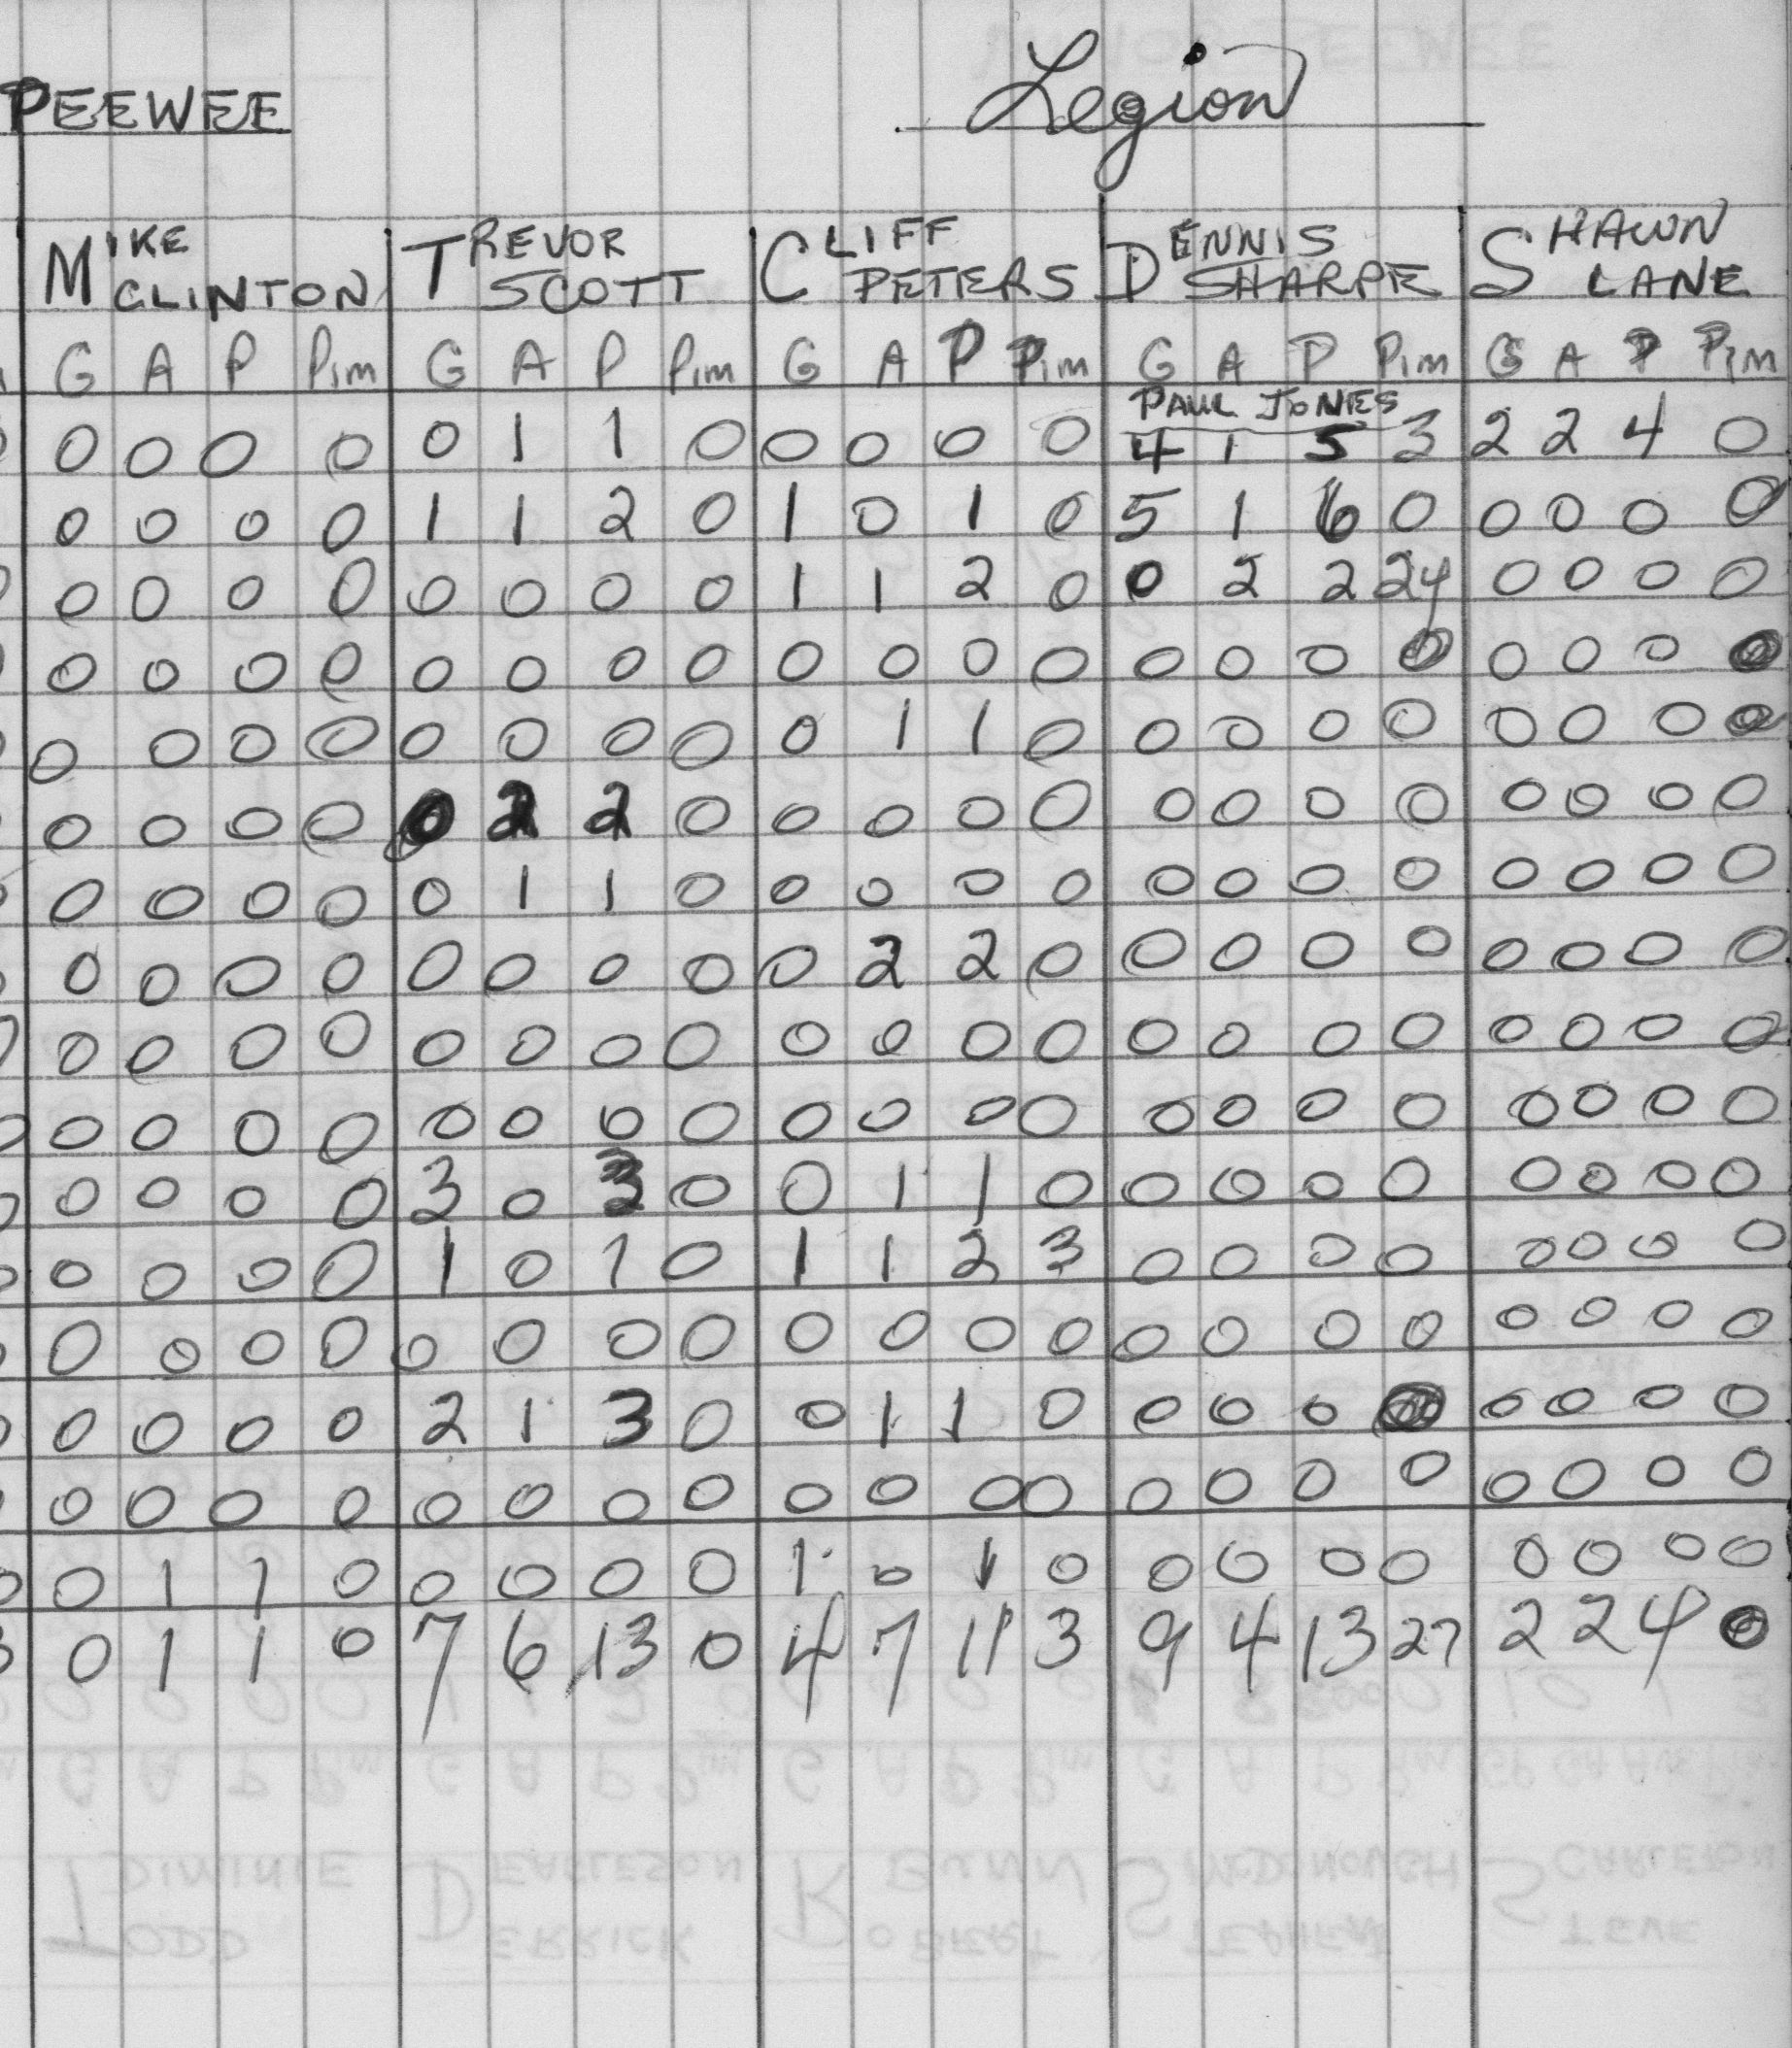 PEEWEE Legion
MIKE CLINTON TREVOR SCOTT CLIFF PETERS DENNIS SHARPE SHAWN LANE
G A P Pim G A P Pim G A P Pim G A P Pim G A P Pim
PAUL JONES
0 0 0 0 0 1 1 0 0 0 0 0 4 1 5 3 2 2 4 0
0 0 0 0 1 1 2 0 1 0 1 0 5 1 6 0 0 0 0 0
0 0 0 0 0 0 0 0 1 1 2 0 0 2 2 24 0 0 0 0
0 0 0 0 0 0 0 0 0 0 0 0 0 0 0 0 0 0 0 0
0 0 0 0 0 0 0 0 0 1 1 0 0 0 0 0 0 0 0 0
0 0 0 0 0 2 2 0 0 0 0 0 0 0 0 0 0 0 0 0
0 0 0 0 0 1 1 0 0 0 0 0 0 0 0 0 0 0 0 0
0 0 0 0 0 0 0 0 0 2 2 0 0 0 0 0 0 0 0 0
0 0 0 0 0 0 0 0 0 0 0 0 0 0 0 0 0 0 0 0
0 0 0 0 0 0 0 0 0 0 0 0 0 0 0 0 0 0 0 0
0 0 0 0 3 0 3 0 0 1 1 0 0 0 0 0 0 0 0 0
0 0 0 0 1 0 1 0 1 1 2 3 0 0 0 0 0 0 0 0
0 0 0 0 0 0 0 0 0 0 0 0 0 0 0 0 0 0 0 0
0 0 0 0 2 1 3 0 0 1 1 0 0 0 0 0 0 0 0 0
0 0 0 0 0 0 0 0 0 0 0 0 0 0 0 0 0 0 0 0
0 1 1 0 0 0 0 0 1 0 1 0 0 0 0 0 0 0 0 0
0 1 1 0 7 6 13 0 4 7 11 3 9 4 13 27 2 2 4 0